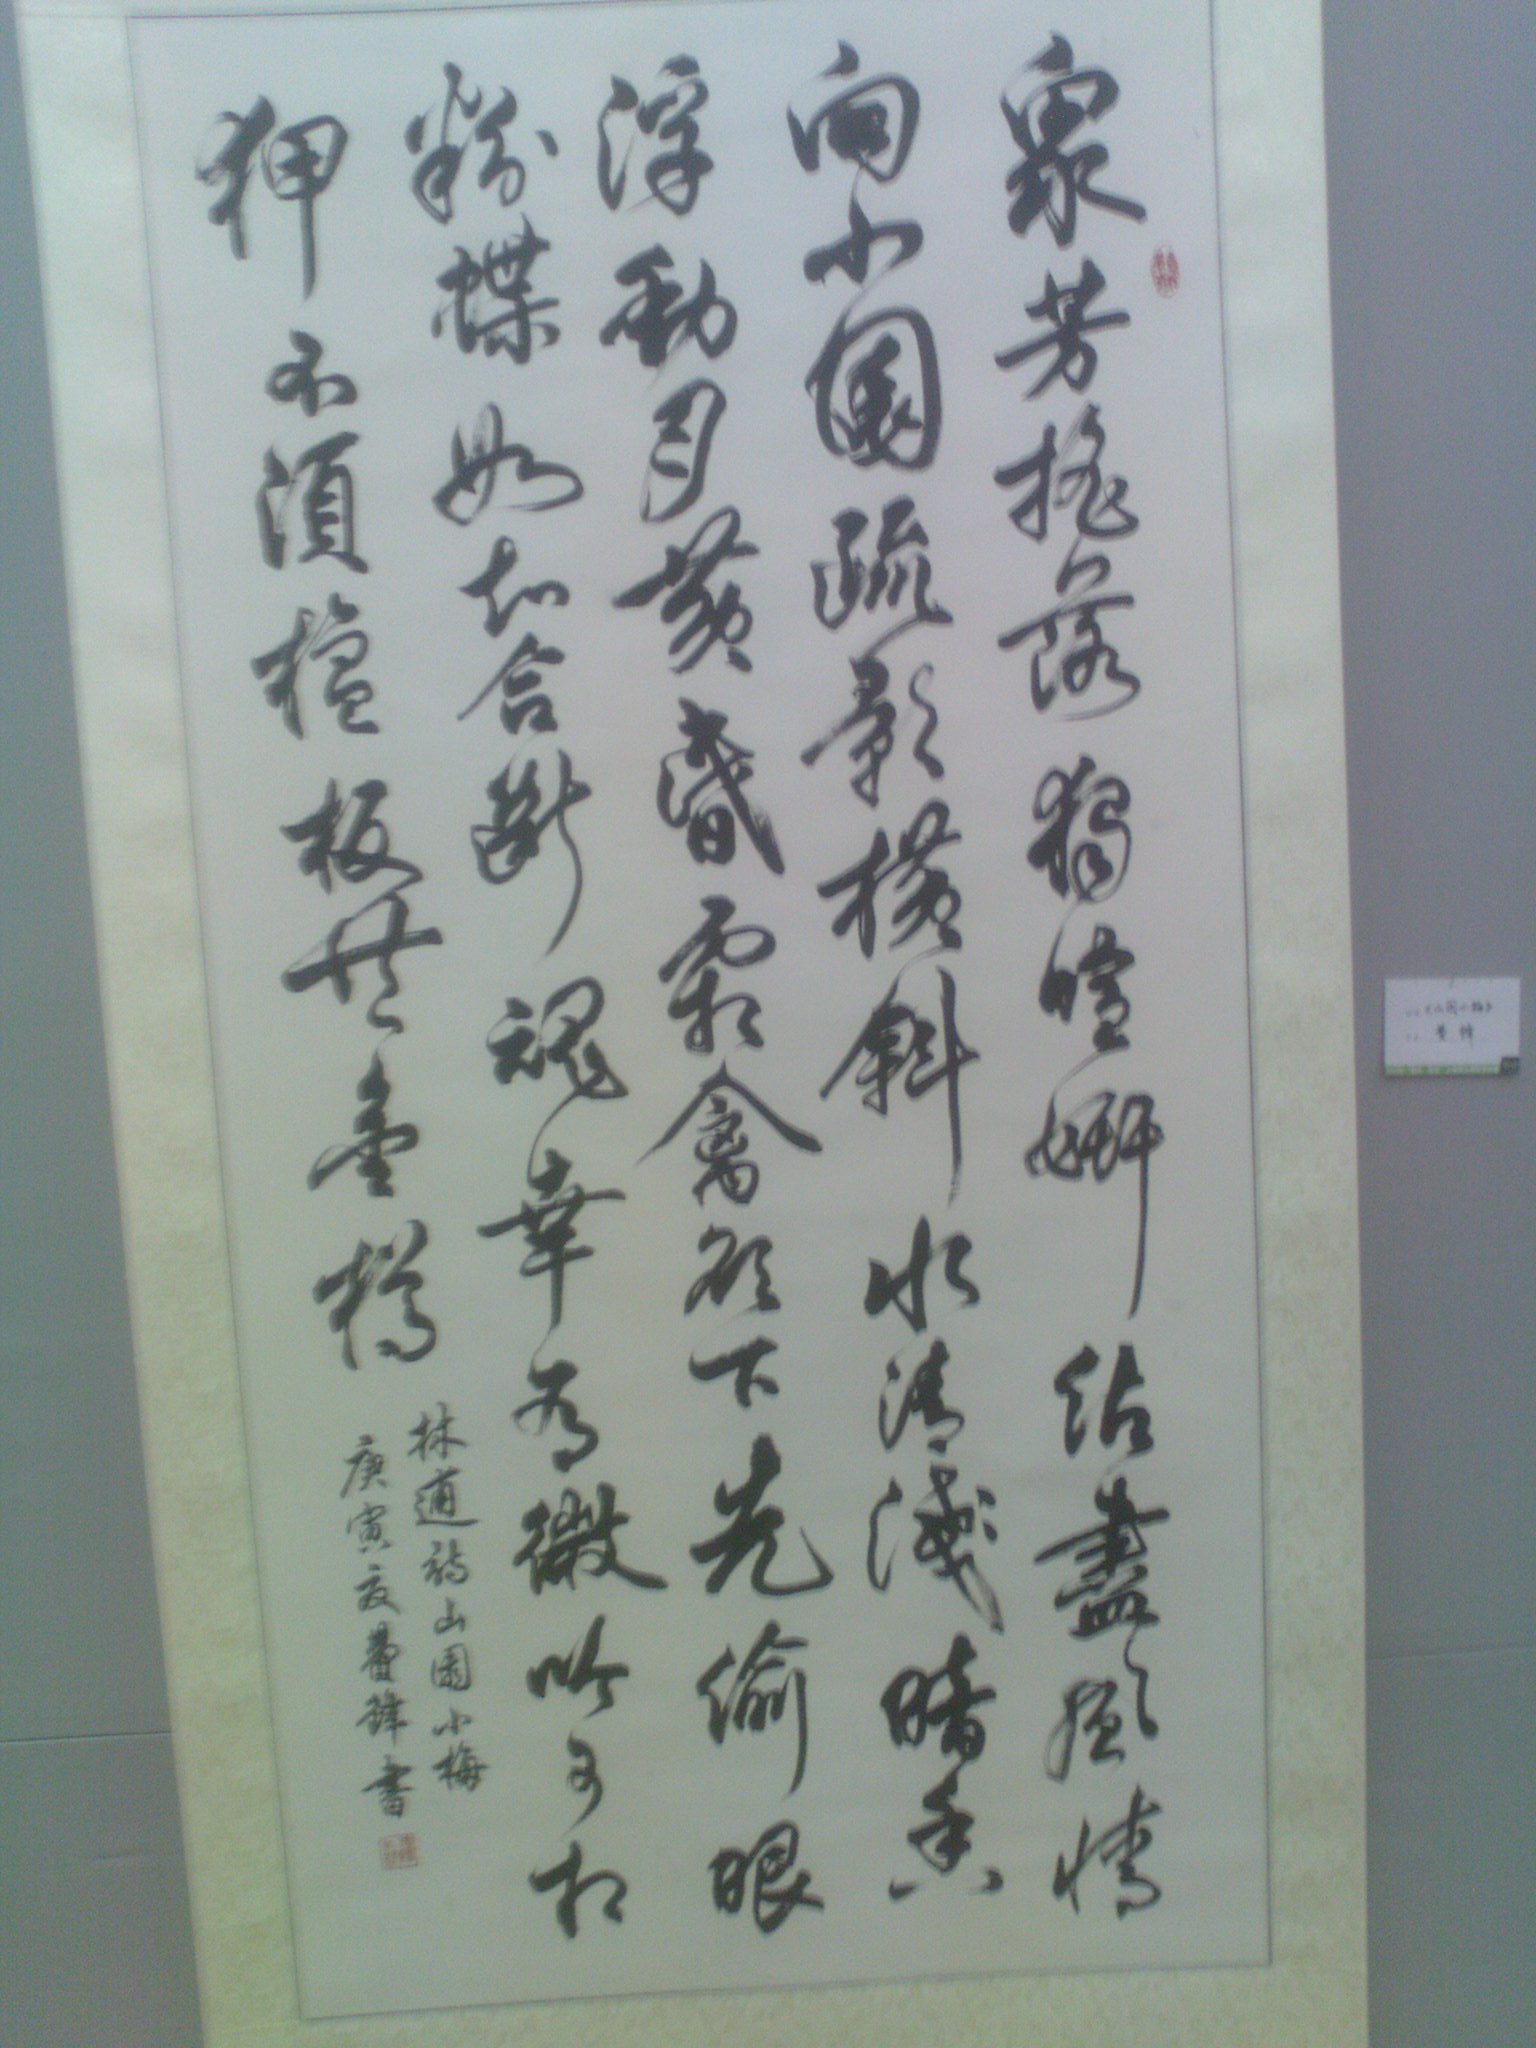 衆芳摇落獨暄妍佔盡風情
向小園疏影横斜水清淺暗香
浮動月黄昏霜禽欲下先偷眼
粉蝶如知合斷魂幸有微吟可相
狎不須檀板共金樽
林逋詩山園小梅
庚寅夏曹鋒書